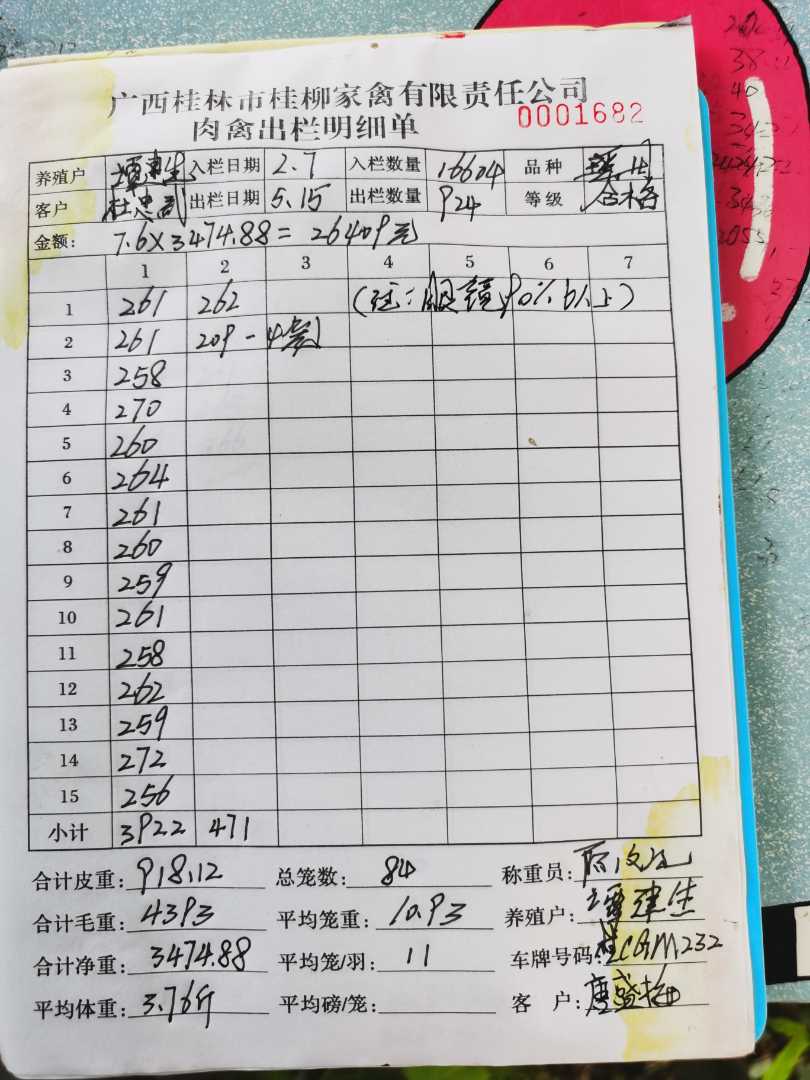 广西桂林市桂柳家禽有限责任公司
肉禽出栏明细单 0001682
养殖户 覃建生 入栏日期 2.7 入栏数量 16604 品种
客户 杜忠武 出栏日期 5.15 出栏数量 924 等级 合格
金额: 7.6×3474.88= 26409元
1 2 3 4 5 6 7
1 261 262 (注: 90%以上)
2 261 209-4笼
3 258
4 270
5 260
6 264
7 261
8 260
9 259
10 261
11 258
12 262
13 259
14 272
15 256
小计 3922 471
合计皮重: 918.12 总笼数: 84 称重员:
合计毛重: 4393 平均笼重: 10.93 养殖户: 覃建生
合计净重: 3474.88 平均笼/羽: 11 车牌号码: 桂CGM232
平均体重: 3.76斤 平均磅/笼: 客 户: